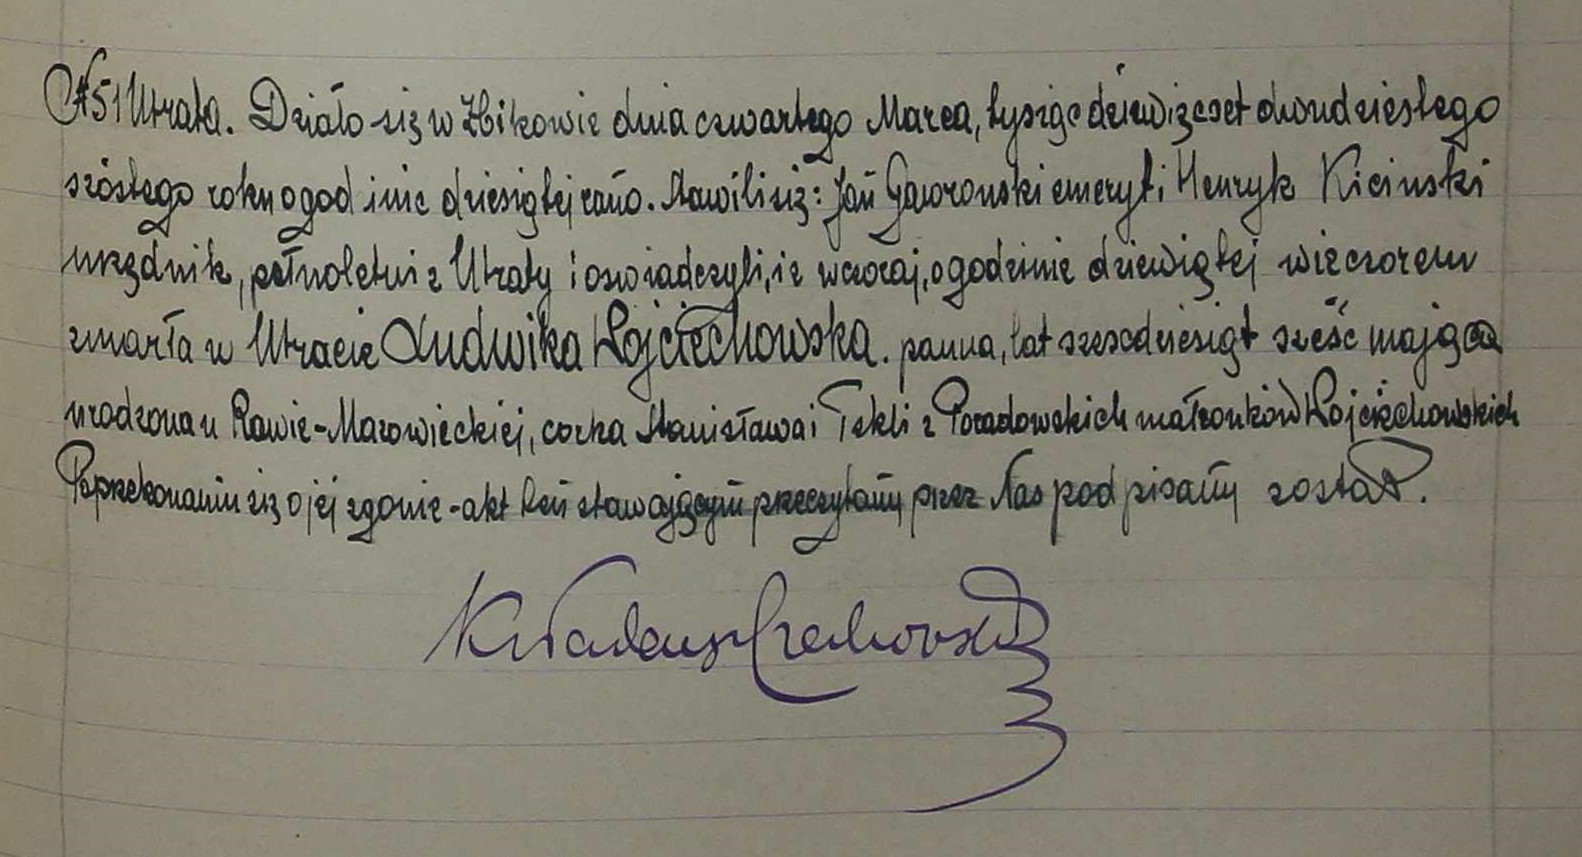 N 51 Utrata. Działo się w Żbikowie dnia czwartego Marca, tysiąc dziewięcset dwudziestego
szóstego roku o godzinie dziesiątej rano. Stawili się: Jan Gaworonski emeryt i Henryk Kicinski
urzędnik, pełnoletni z Utraty i oswiadczyli, iz wczoraj, o godzinie dziewiątej wieczorem
zmarła w Utracie Ludwika Wojciechowska. panna, lat szescdziesiąt sześć mająca
urodzona w Rawie-Mazowieckiej, corka Stanisława i Tekli z Poradowskich małzonków Wojciechowskich
Po przekonaniu się o jej zgonie - akt ten stawającym przeczytany przez Nas podpisany został.